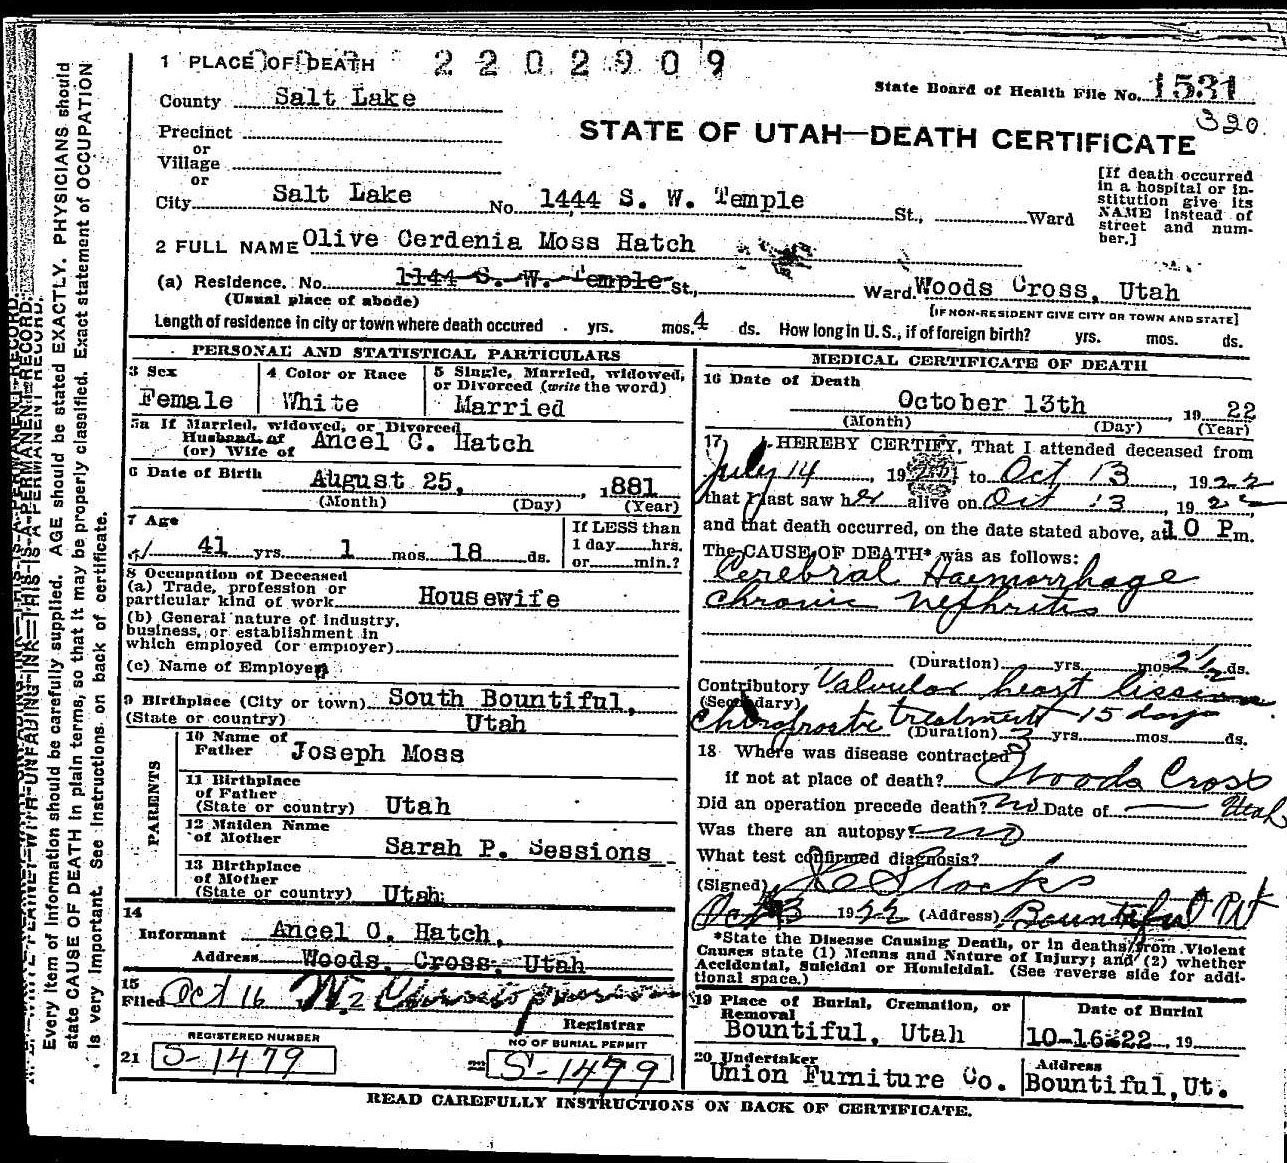 1 PLACE OF DEATH 2202909
State Board of Health File No. 1531
County Salt Lake
320
Precinct
STATE OF UTAH—DEATH CERTIFICATE
or
Village
or
City Salt Lake No. 1444 S. W. Temple St., Ward
[If death occurred in a hospital or institution give its NAME instead of street and number.]
2 FULL NAME Olive Cerdenia Moss Hatch
(a) Residence. No. 1144 S. W. Temple St., Ward. Woods Cross, Utah
(Usual place of abode) [IF NON-RESIDENT GIVE CITY OR TOWN AND STATE]
Length of residence in city or town where death occured yrs. mos. 4 ds. How long in U. S., if of foreign birth? yrs. mos. ds.
PERSONAL AND STATISTICAL PARTICULARS
3 Sex
Female
4 Color or Race
White
5 Single, Married, widowed, or Divorced (write the word)
Married
5a If Married, widowed, or Divorced
Husband of
(or) Wife of Ancel C. Hatch
6 Date of Birth August 25, 1881
(Month) (Day) (Year)
7 Age
41 yrs. 1 mos. 18 ds.
If LESS than
1 day hrs.
or min.?
8 Occupation of Deceased
(a) Trade, profession or
particular kind of work Housewife
(b) General nature of industry,
business, or establishment in
which employed (or employer)
(c) Name of Employer
9 Birthplace (City or town) South Bountiful,
(State or country) Utah
PARENTS
10 Name of
Father Joseph Moss
11 Birthplace
of Father
(State or country) Utah
12 Maiden Name
of Mother Sarah P. Sessions
13 Birthplace
of Mother
(State or country) Utah
14
Informant Ancel C. Hatch,
Address Woods Cross, Utah
15
Filed Oct 16
Registrar
REGISTERED NUMBER
21 S-1479
NO OF BURIAL PERMIT
22 S-1479
MEDICAL CERTIFICATE OF DEATH
16 Date of Death
October 13th, 19 22
(Month) (Day) (Year)
17 I HEREBY CERTIFY, That I attended deceased from
July 14, 19 to Oct 13, 1922
that I last saw her alive on Oct 13, 1922,
and that death occurred, on the date stated above, at 10 P m.
The CAUSE OF DEATH* was as follows:
Cerebral Haemorrhage
Chronic Nephritis
(Duration) yrs. mos. 2½ ds.
Contributory Valvular heart lission
(Secondary)
Chiroprostic treatment 15 days
(Duration) yrs. mos. ds.
18 Where was disease contracted
if not at place of death? Woods Cross
Utah
Did an operation precede death? No Date of —
Was there an autopsy? no
What test confirmed diagnosis?
(Signed) Stocks
Oct 13 1922 (Address) Bountiful Ut
*State the Disease Causing Death, or in deaths from Violent
Causes state (1) Means and Nature of Injury; and (2) whether
Accidental, Suicidal or Homicidal. (See reverse side for additional space.)
19 Place of Burial, Cremation, or
Removal
Bountiful, Utah
Date of Burial
10-16-22, 19
20 Undertaker
Union Furniture Co.
Address
Bountiful, Ut.
READ CAREFULLY INSTRUCTIONS ON BACK OF CERTIFICATE.
Every item of information should be carefully supplied. AGE should be stated EXACTLY. PHYSICIANS should
state CAUSE OF DEATH in plain terms, so that it may be properly classified. Exact statement of OCCUPATION
is very important. See instructions on back of certificate.